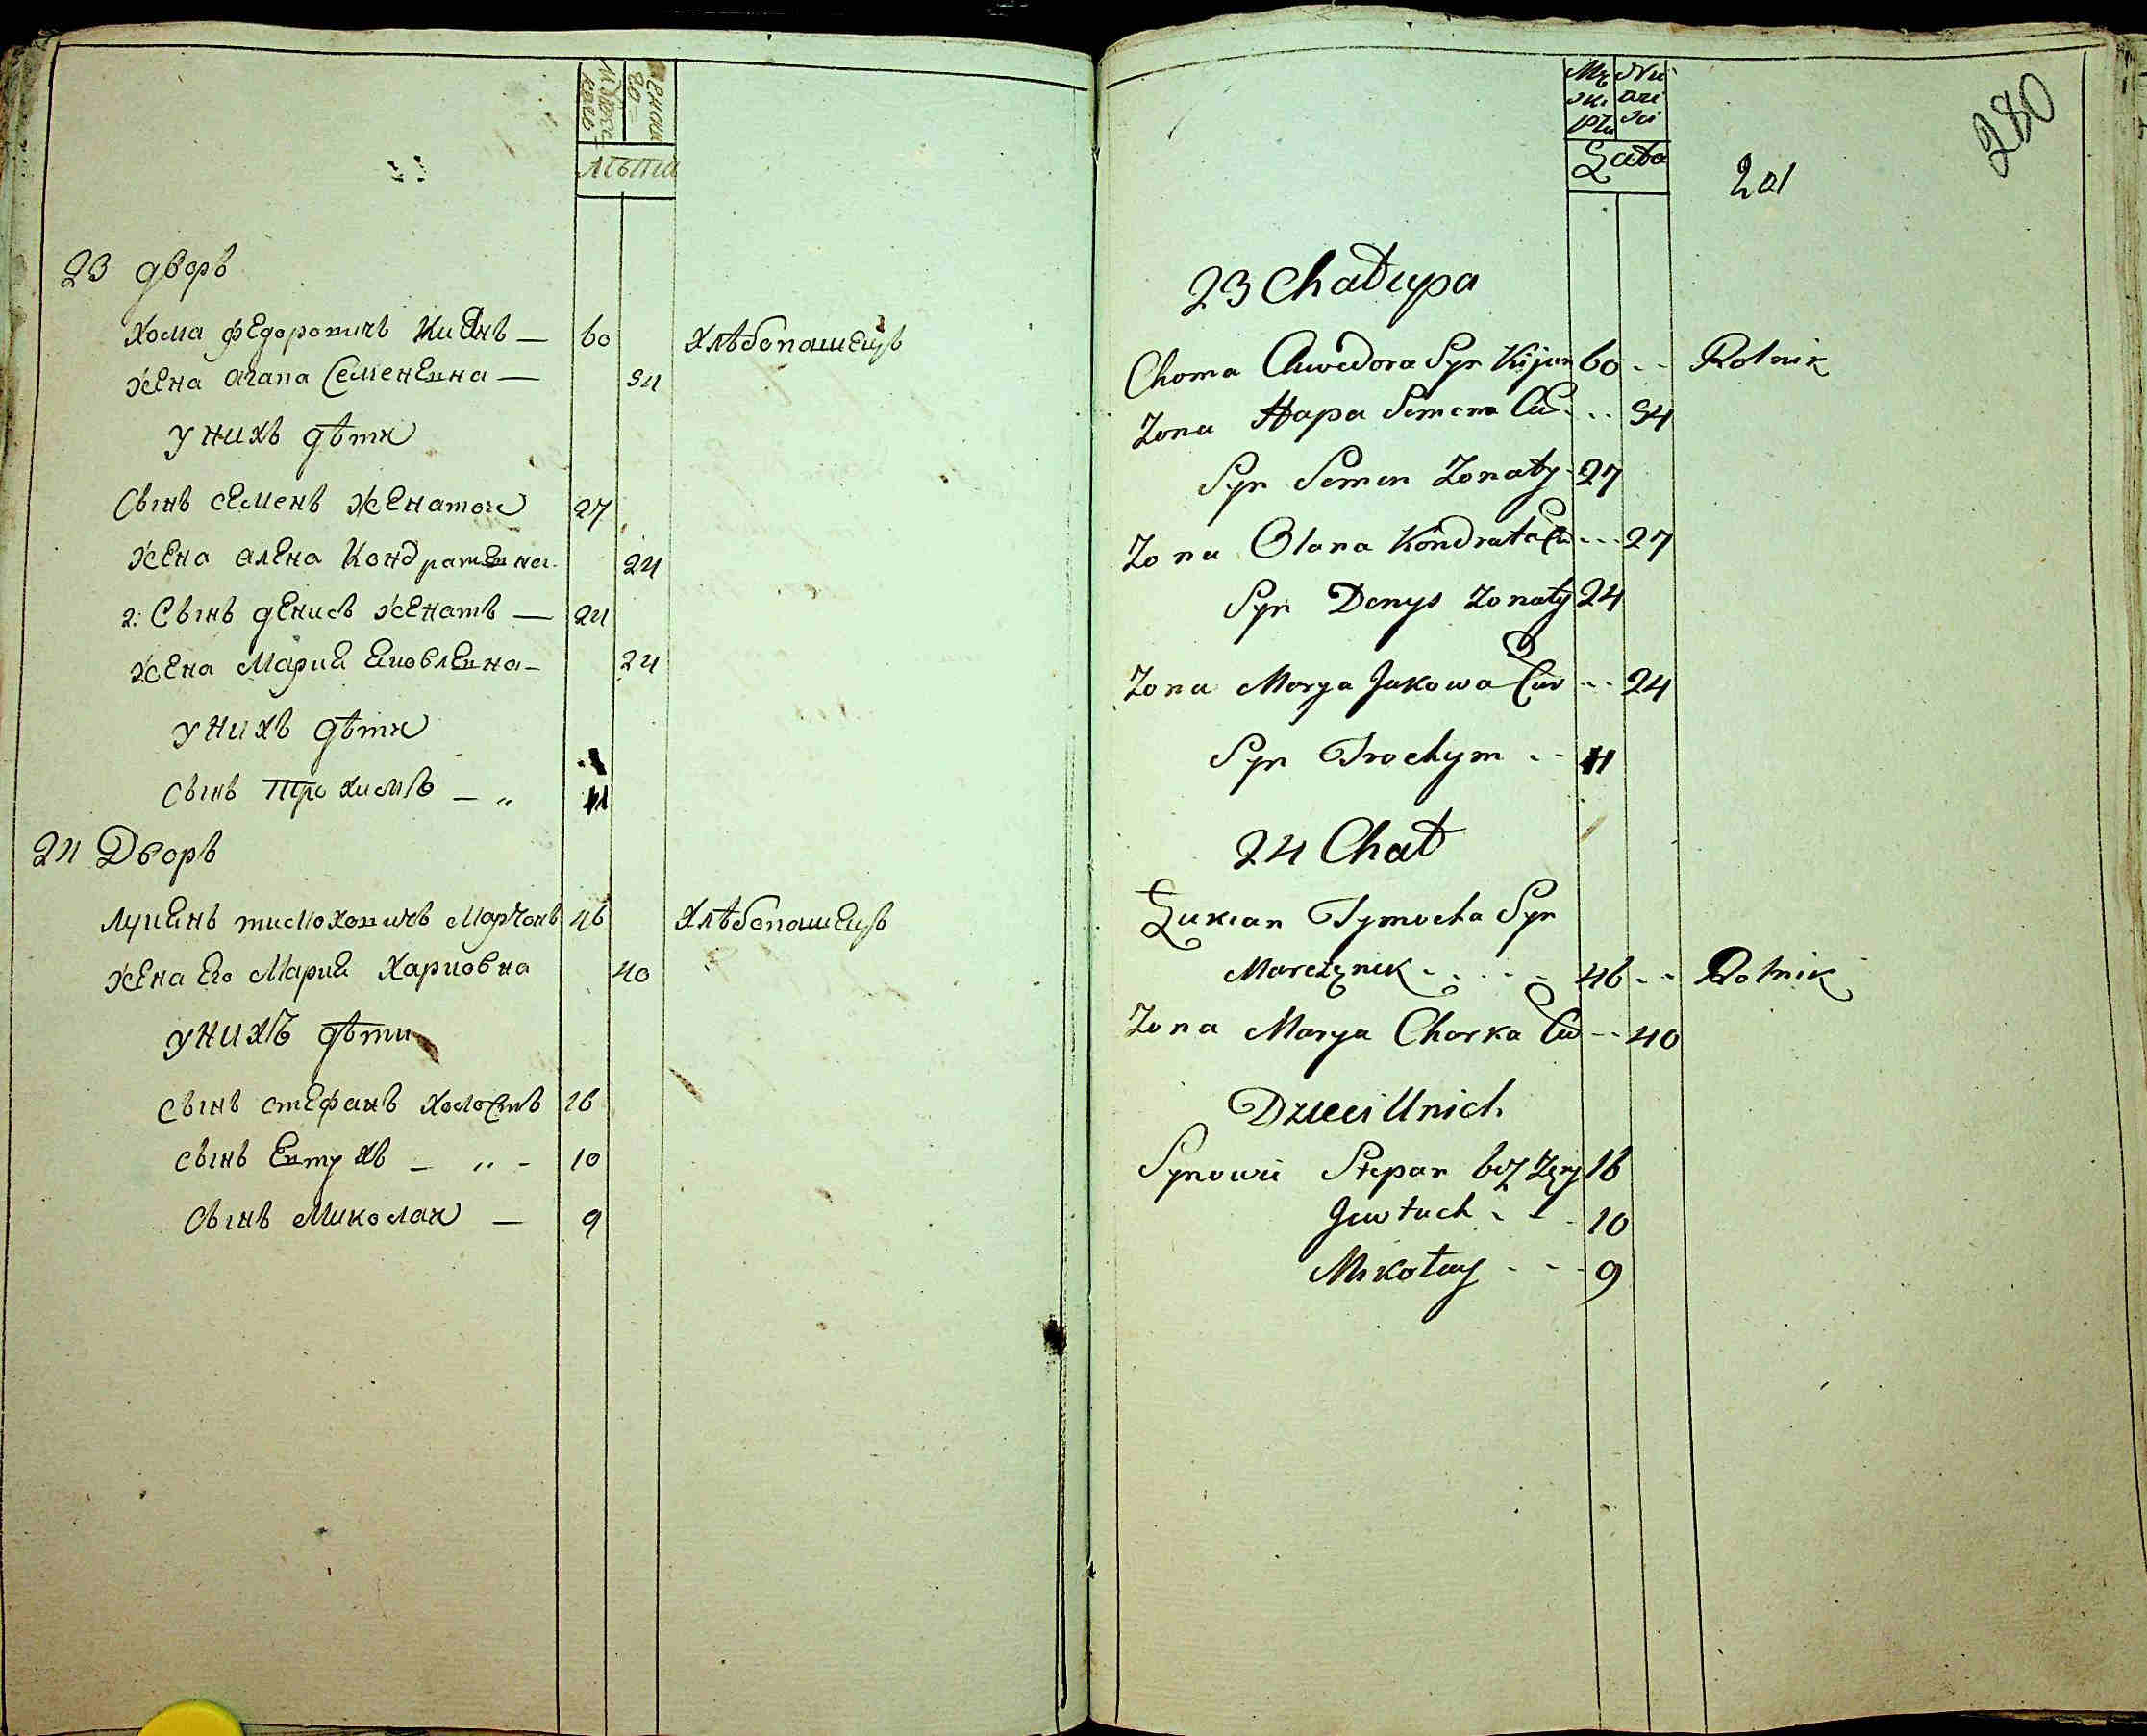 Мужескъ
Женска го
Лѣта
23 дворъ
Хома Федоровичъ Киянъ — 60 Хлѣбопашецъ
жена агапа Семеновна — 54
у нихъ дѣти
Сынъ семенъ женатой 27
жена алена Кондратовна 24
2: Сынъ денисъ женатъ — 24
жена Мария Яковлевна — 24
у нихъ дѣти
сынъ Трохимъ — „ 11
24 Дворъ
Лукянъ тимохович Марчонъ 46 Хлѣбопашецъ
жена Его Мария Харковна 40
у нихъ дѣти
сынъ стефанъ холостъ 16
сынъ Евтухъ — „ — 10
Сынъ Миколай — 9
280
201
Łata
23 Chałupa
Choma Chwedora Syn Kijan 60 Rolnik
Zona Hapa Semena Cu 54
Syn Semen Zonaty 27
Zona Olana Kondrata Cu 27
Syn Denys Zonaty 24
Zona Marya Jakowa Cur 24
Syn Trochym 11
24 Chał
Łukian Tymocha Syn
Marczęnek 46 Rolnik
Zona Marya Charka Cu 40
Dzieci U nich
Synowie Stepan bez Zeny 16
Jewtuch 10
Mikołay 9